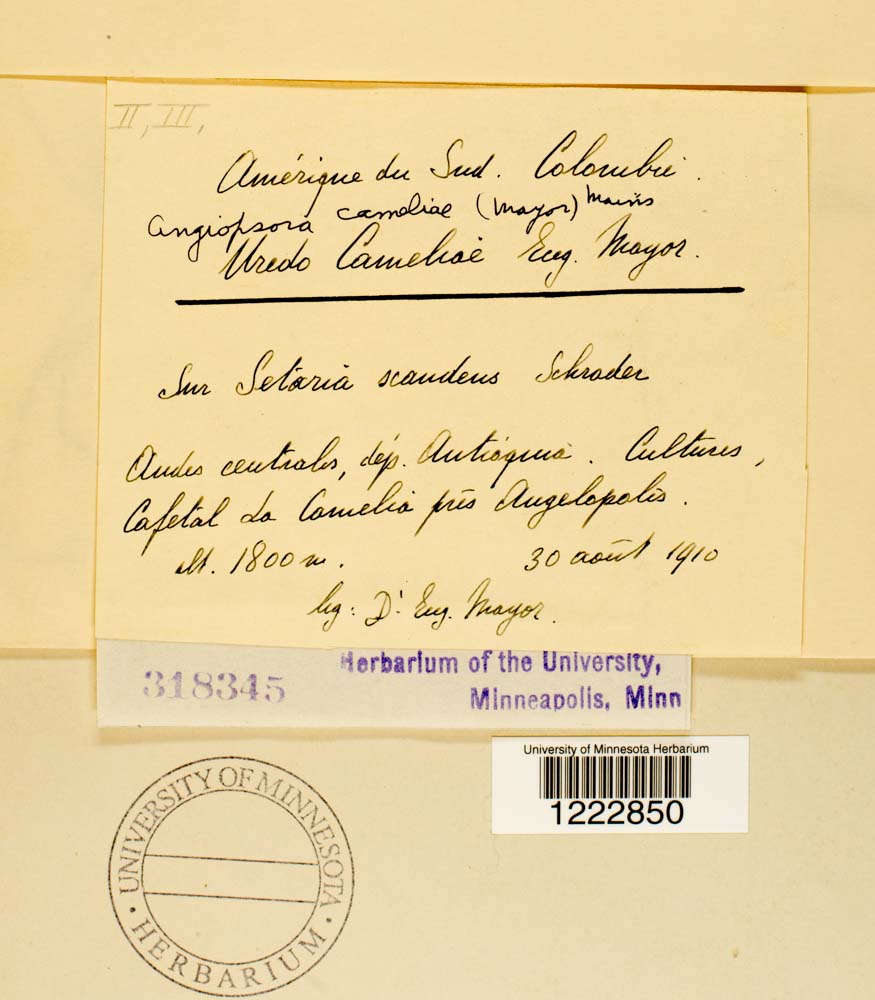 II, III,
Amérique du Sud. Colombie.
Angiopsora cameliae (Mayor) Mains
Uredo Cameliae Eug. Mayor.
Sur Setaria scandens Schrader
Andes centrales, dép. Antioquia. Cultures,
Cafetal La Camelia près Angelopolis.
alt. 1800 m. 30 août 1910
leg: Dr. Eug. Mayor.
318345 Herbarium of the University,
Minneapolis, Minn
University of Minnesota Herbarium
1222850
UNIVERSITY OF MINNESOTA
· HERBARIUM ·